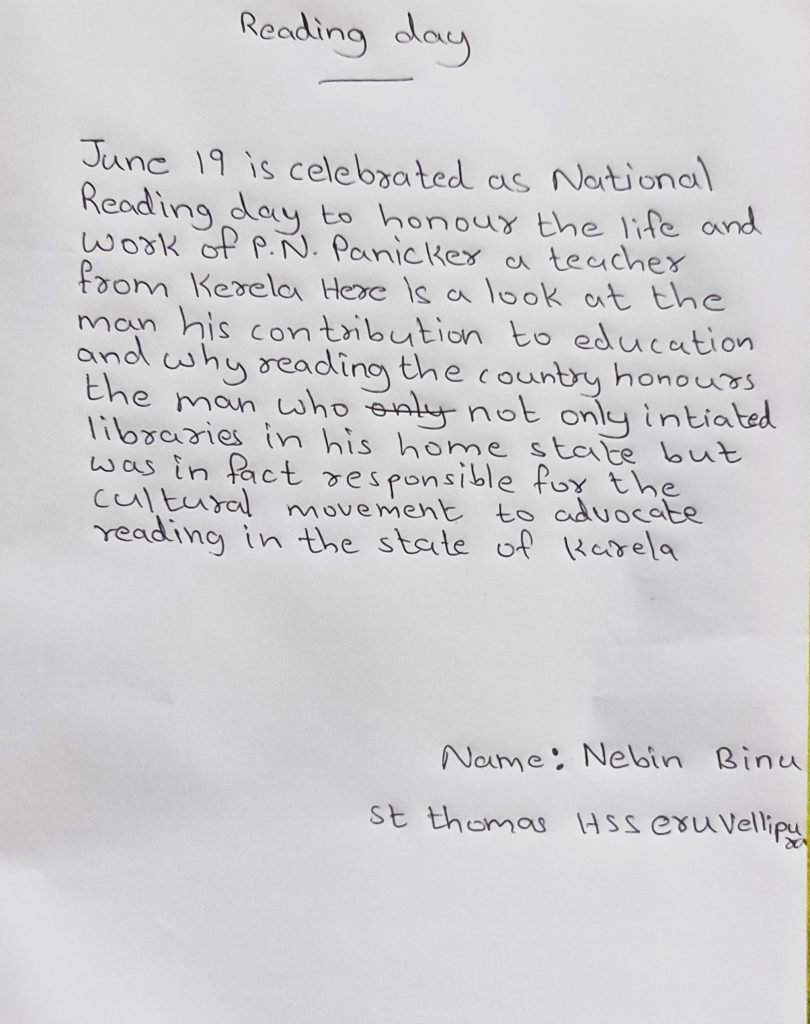 Reading day
June 19 is celebrated as National
Reading day to honour the life and
work of P.N. Panicker a teacher
from Kerela Here Is a look at the
man his contribution to education
and why reading the country honours
the man who only not only intiated
libraries in his home state but
was in fact responsible for the
cultural movement to advocate
reading in the state of Karela
Name: Nebin Binu
St thomas HSS eruvellipu
ra